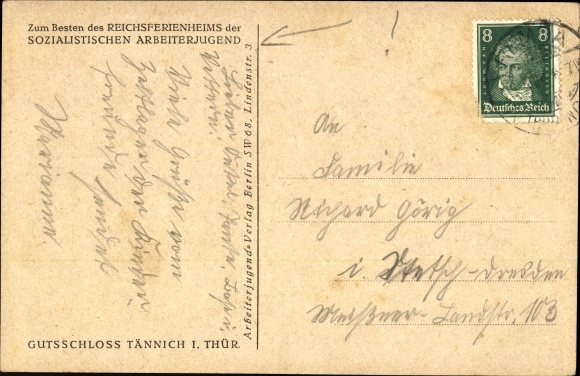 Zum Besten des REICHSFERIENHEIMS der
SOZIALISTISCHEN ARBEITERJUGEND
Lieber Onkel, Tante,
Viele Grüße vom
Zeltlager der Kinder-
freunde sendet
Marianne
GUTSSCHLOSS TÄNNICH I. THÜR.
Arbeiterjugend-Verlag Berlin SW 68, Lindenstr. 3
!
8 8
Deutsches Reich
An
Familie
Richard Görig
i. Dresden
Meißner-Landstr. 103